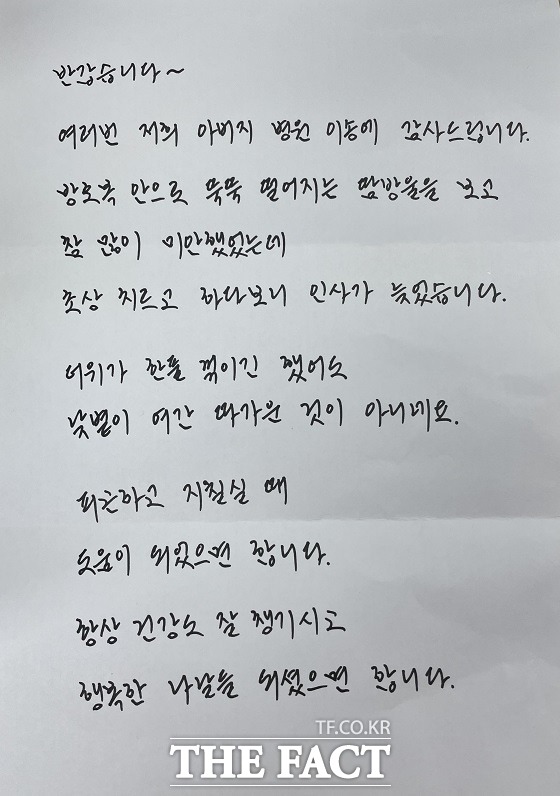 반갑습니다~
여러번 저희 아버지 병원 이송에 감사드립니다.
방호복 안으로 뚝뚝 떨어지는 땀방울을 보고
참 많이 미안했었는데
초상 치르고 하다보니 인사가 늦었습니다.
더위가 한풀 꺾이긴 했어도
낮볕이 여간 따가운 것이 아니네요.
피곤하고 지치실 때
도움이 되었으면 합니다.
항상 건강도 잘 챙기시고
행복한 나날들 되셨으면 합니다.
TF.CO.KR
THE FACT